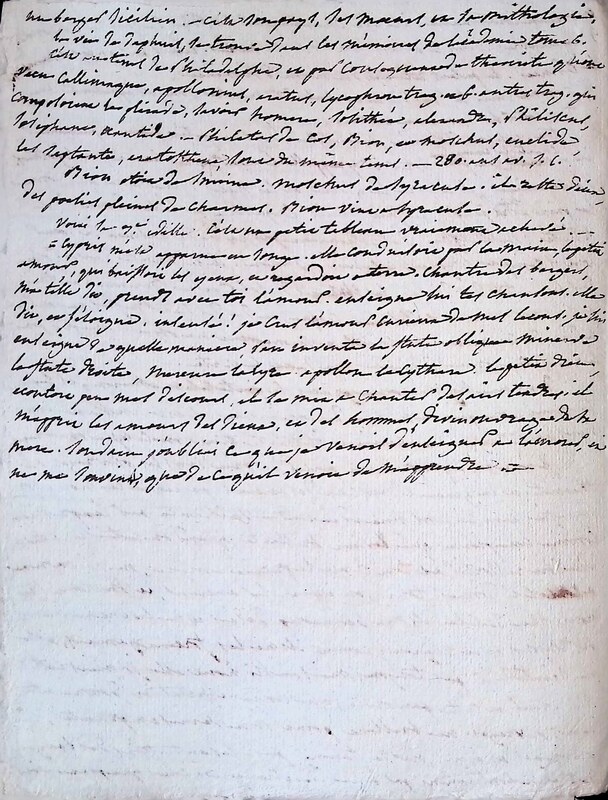 un berger sicilien. - c'est son pays, ses mœurs, et sa mithologie,
la vie de daphnis, se trouve dans les mémoires de l'académie tome 6.
c'est au tems de Philadelphe, et par consequent de theocrite qu'on
vecu Callimaque, apollonius, aratus, lycophron trag. et 6. autres trag. qui
composerent la pléiade, savoir homere, sosithée, alexandre, Philiscus,
- Philetas de Cos, Bion, et moschus, euclide,
les septante, eratosthene, sont du même tems. - 280. ans av. J. C.
Bion étoit de Smirne. moschus de Syracuse. il reste d'eux
des poesies pleines de charmes. Bion vint a Syracuse.
Voici la 3e. idille. C'est un petit tableau vraiment achevé. -
= Cypris m'est apparue en songe. elle conduisoit par la main, le petit
amour, qui baissoit les yeux, et regardoit a terre. Chantre des bergers,
me telle dit, prends avec toi l'amour. enseigne lui tes chansons. elle
dit, et s'éloigne. insensé! je crus l'amour curieux de mes leçons. je lui
enseigne de quelle maniere Pan inventa la flute oblique minerve
la flute droite, mercure la lyre apollon la Cythare. le petit dieu,
ecoutoit peu mes discours, il se mit a chanter des airs tendres. il
m'apprit les amours des dieux, et des hommes, divin ouvrage de sa
mere. soudain j'oubliai ce que je venois d'enseigner a l'amour, et
ne me souvins, que de ce qu'il venoit de m'apprendre =